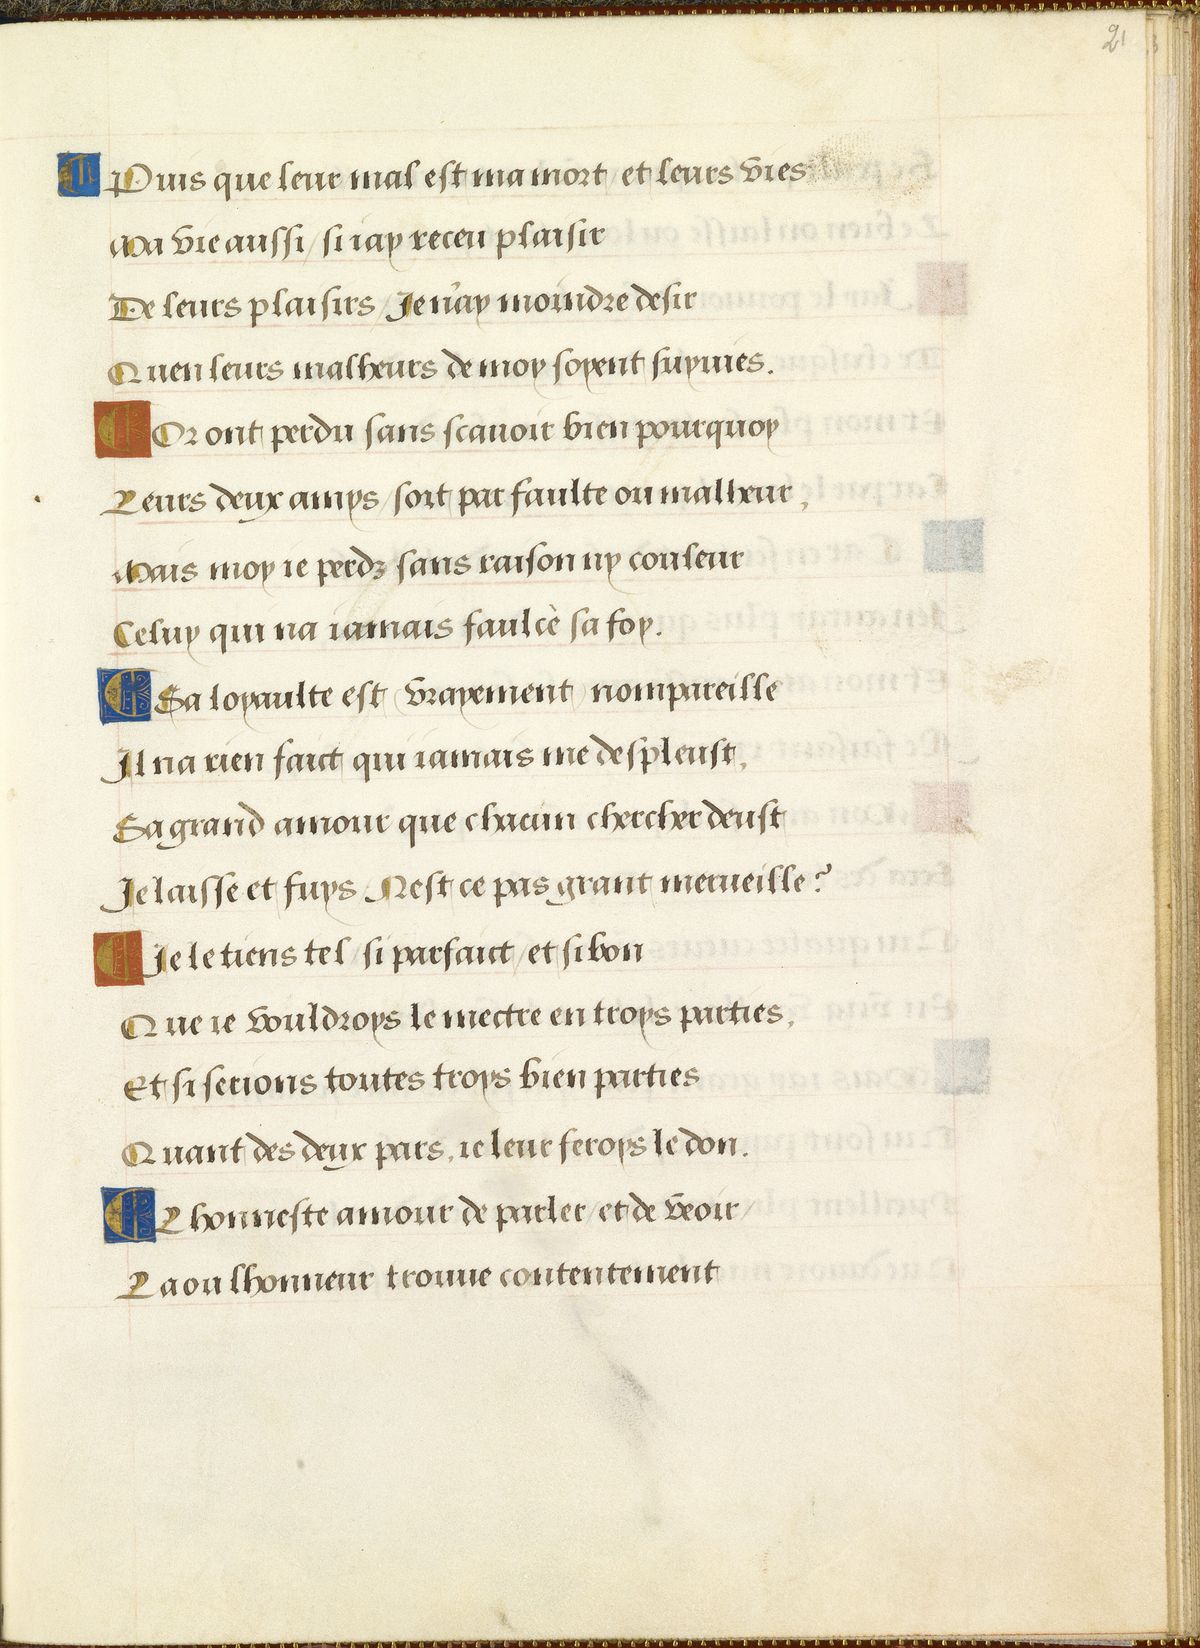 21
Puis que leur mal est ma mort / et leurs vies
Ma vie aussi / si iay receu plaisir
De leurs plaisirs / Je n'ay moindre desir
Quen leurs malheurs de moy soyent suyuies.
Or ont perdu sans scauoir bien pourquoy
Leurs deux amys / soit par faulte ou malheur,
Mais moy ie perdz sans raison ny couleur
Celuy qui na iamais faulcè sa foy.
Sa loyaulte est vrayement nompareille
Il na rien faict qui iamais me despleust,
Sa grand amour que chacun chercher deust
Je laisse et fuys / Nest ce pas grant merueille ?
Je le tiens tel / si parfaict / et si bon
Que ie vouldroys le mectre en troys parties,
Et si serions toutes troys bien parties
Quant des deux pars, ie leur feroys le don.
Lhonneste amour de parler / et de veoir /
La ou lhonneur trouue contentement